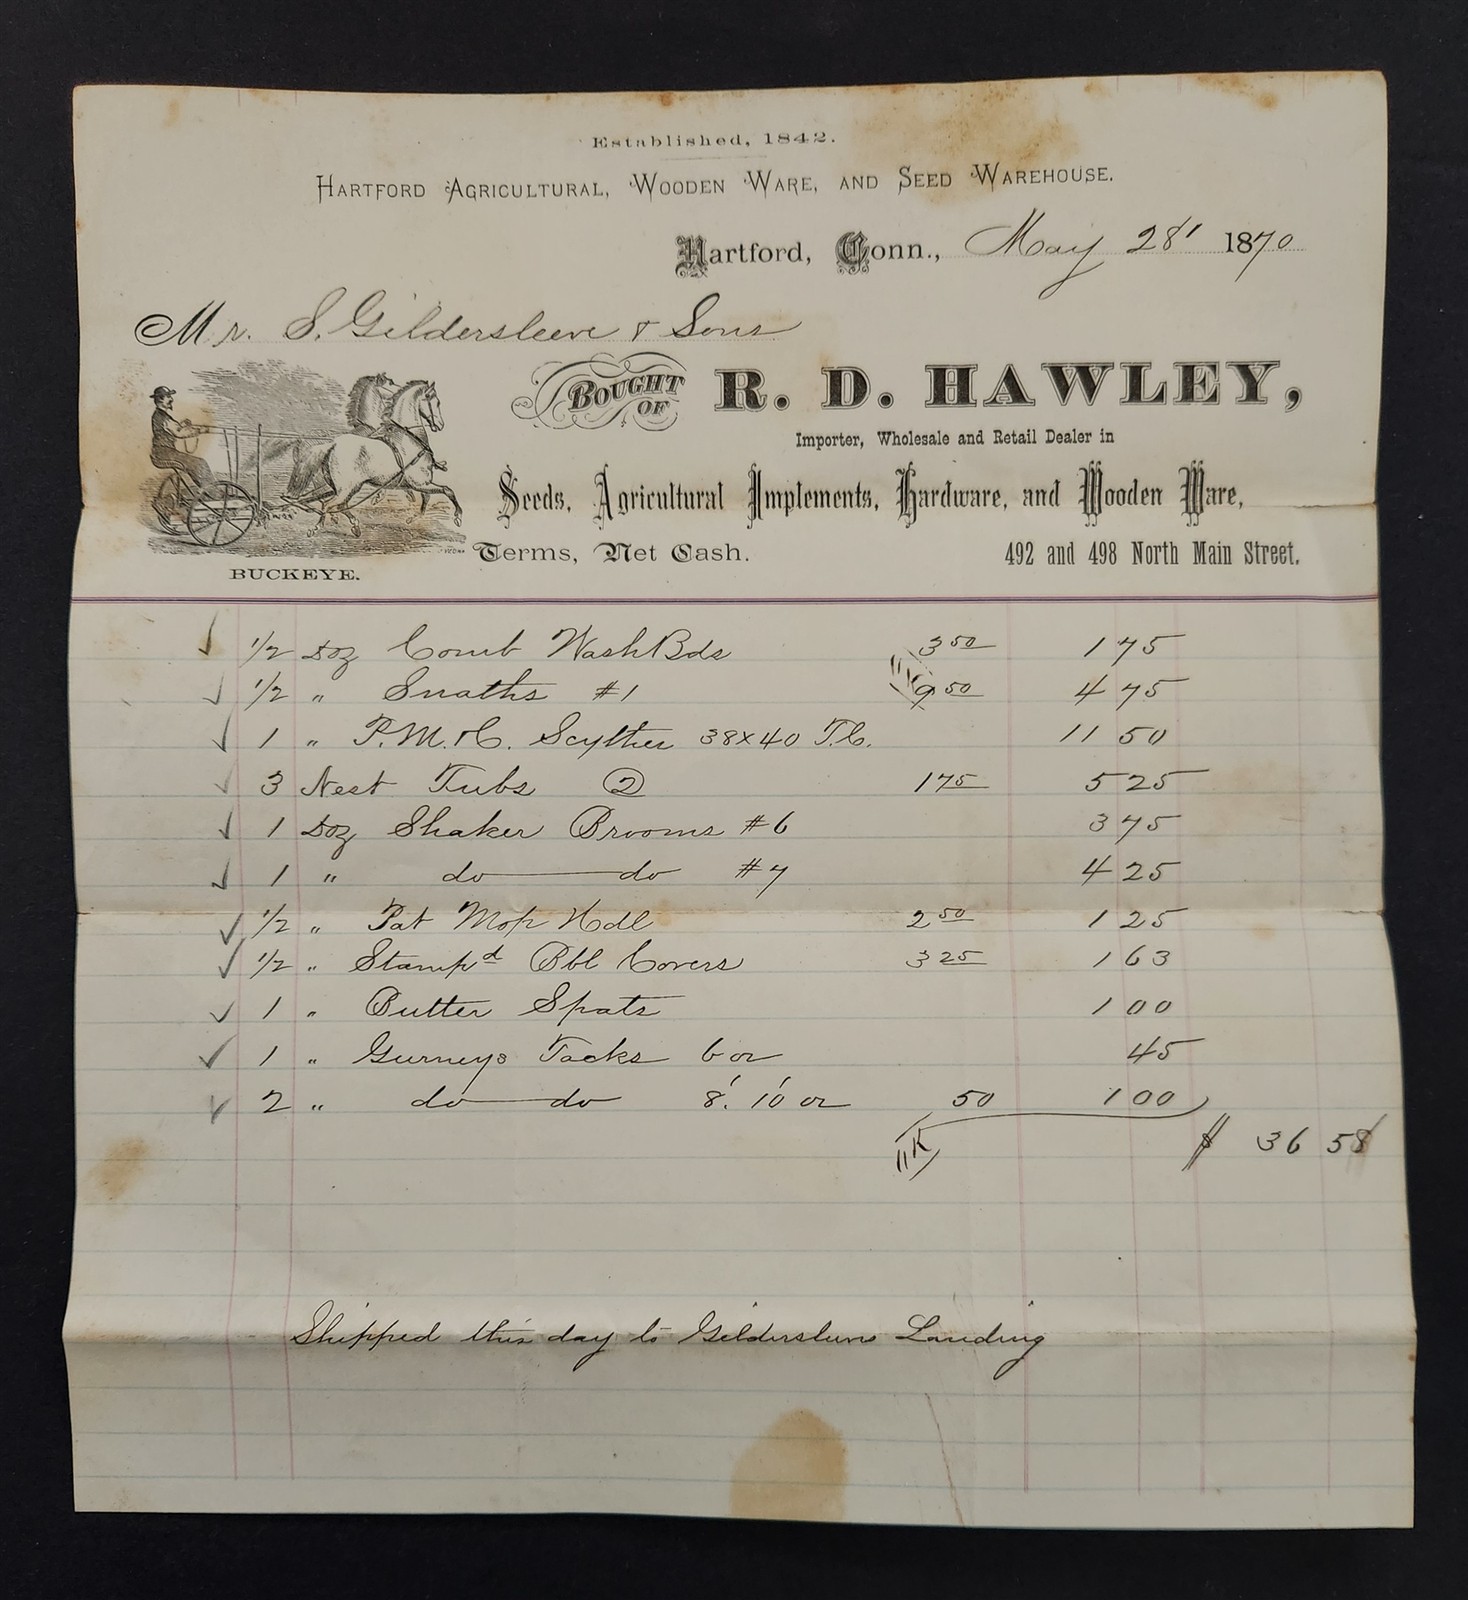 Established, 1842.
Hartford Agricultural, Wooden Ware, and Seed Warehouse.
Hartford, Conn., May 28' 1870
Mr. S. Gildersleeve & Sons
Bought of R. D. HAWLEY,
Importer, Wholesale and Retail Dealer in
Seeds, Agricultural Implements, Hardware, and Wooden Ware,
Terms, Net Cash. 492 and 498 North Main Street.
BUCKEYE.
1/2 Doz Comb Wash Bds 3 50 1 75
1/2 " Snaths #1 9 50 4 75
1 " P.M.&C. Scythes 38x40 T.C. 11 50
3 Nest Tubs ② 1 75 5 25
1 Doz Shaker Brooms #6 3 75
1 " do do #7 4 25
1/2 " Pat Mop Hdl 2 50 1 25
1/2 " Stampd Bbl Covers 3 25 1 63
1 " Butter Spats 1 00
1 " Gurneys Tacks 6 oz 45
2 " do do 8' 10' oz 50 1 00
$ 36 58
Shipped this day to Gildersleeve Landing